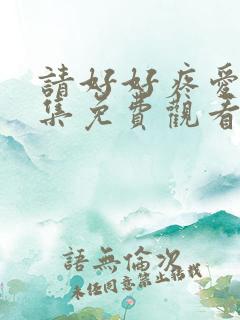 請好好疼愛
集免費觀看
語無倫次
未經同意禁止搭載